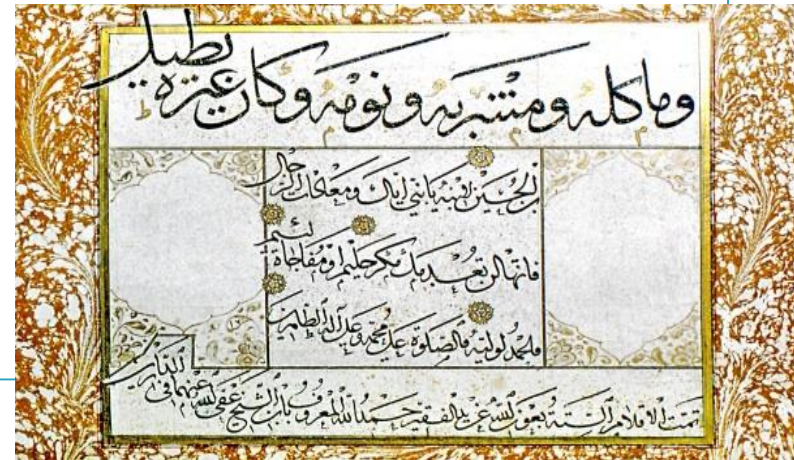 وماكله ومشربه ونومه وكان غيره يطيل
بن الحسين لابنه يا بني اياك ومعاداة الرجال
فانها لن تعدمك مكر حليم او مفاجاة لئيم
والحمد لوليه والصلوة على محمد وعلى آله الطاهرين
تمت الاقلام الستة بعون الله عن يد الفقير حمد الله المعروف بابن الشيخ عفى الله عنهما في الدارين